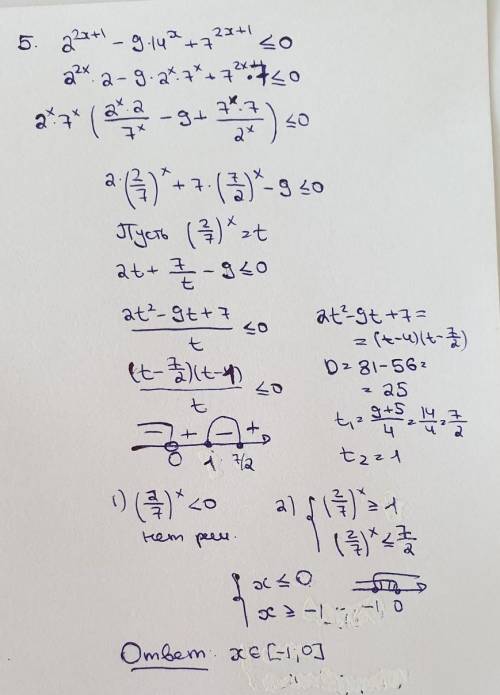 5. 2^{2x+1} - 9·14^x + 7^{2x+1} ≤ 0
2^{2x}·2 - 9·2^x·7^x + 7^{2x}·7 ≤ 0
2^x·7^x (\frac{2^x·2}{7^x} - 9 + \frac{7^x·7}{2^x}) ≤ 0
2·(\frac{2}{7})^x + 7·(\frac{7}{2})^x - 9 ≤ 0
Пусть (\frac{2}{7})^x = t
2t + \frac{7}{t} - 9 ≤ 0
\frac{2t^2 - 9t + 7}{t} ≤ 0
\frac{(t - \frac{7}{2})(t - 1)}{t} ≤ 0
- + - +
0 1 7/2
2t^2 - 9t + 7 =
= (t - 1)(t - \frac{7}{2})
D = 81 - 56 =
= 25
t_1 = \frac{9+5}{4} = \frac{14}{4} = \frac{7}{2}
t_2 = 1
1) (\frac{2}{7})^x < 0
нет реш.
2) { (\frac{2}{7})^x ≥ 1
(\frac{2}{7})^x ≤ \frac{7}{2}
{ x ≤ 0
x ≥ -1
-1 0
Ответ: x ∈ [-1, 0]